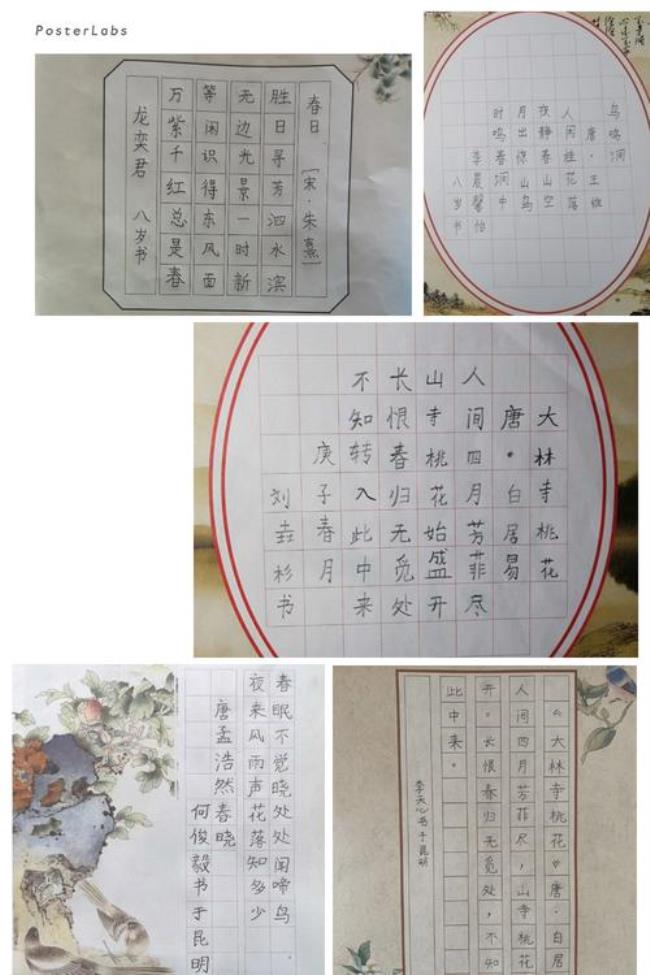 PosterLabs
春日 [宋·朱熹]
胜日寻芳泗水滨
无边光景一时新
等闲识得东风面
万紫千红总是春
龙奕君 八岁书
鸟鸣涧
唐·王维
人闲桂花落
夜静春山空
月出惊山鸟
时鸣春涧中
李晨馨怡
八岁书
大林寺桃花
唐·白居易
人间四月芳菲尽
山寺桃花始盛开
长恨春归无觅处
不知转入此中来
庚子春月
刘垚杉书
春眠不觉晓处处闻啼鸟
夜来风雨声花落知多少
唐孟浩然春晓
何俊毅书于昆明
《大林寺桃花》唐·白居
人间四月芳菲尽，山寺桃花
开。长恨春归无觅处，不知
此中来。
李天心书于昆明